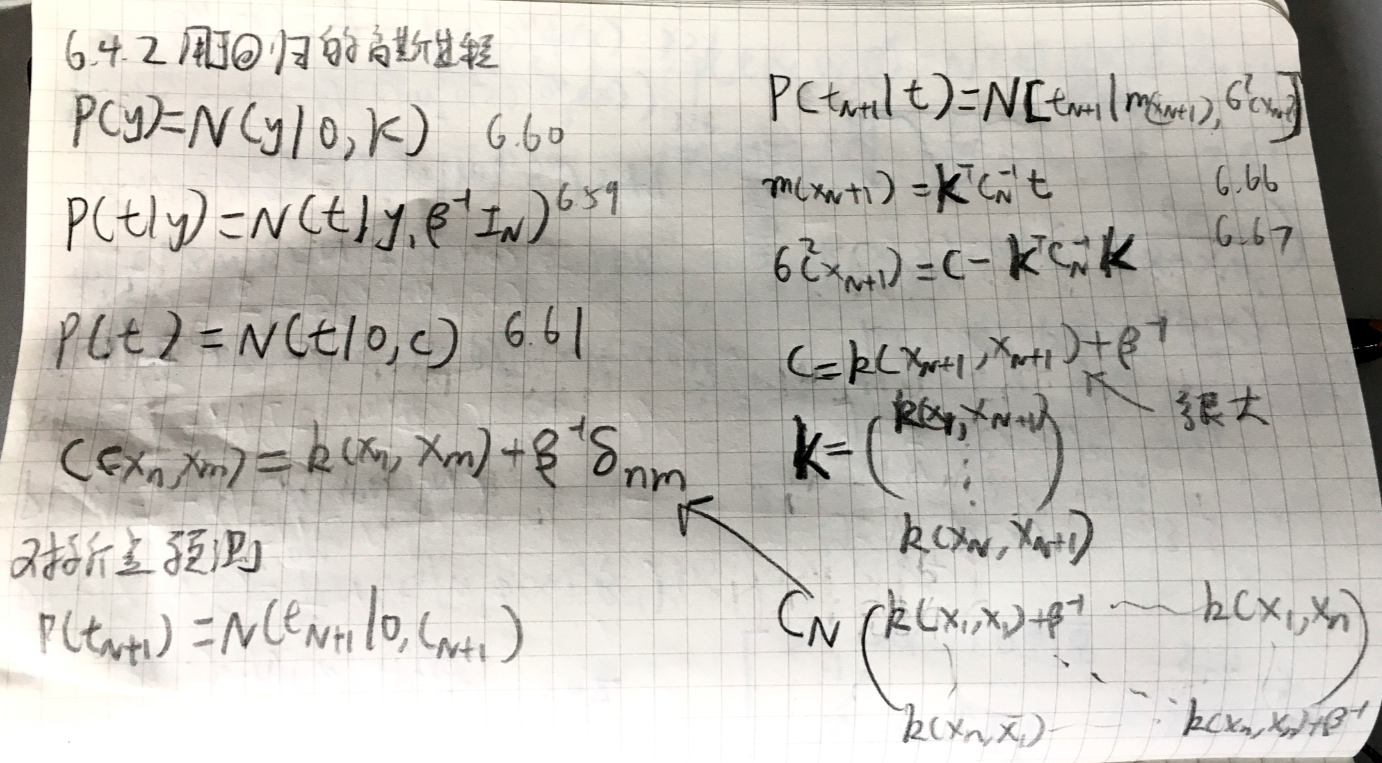 6.4.2 用于回归的高斯过程
P(y)=N(y|0,K) 6.60
P(t|y)=N(t|y,β⁻¹I_N) 6.59
P(t)=N(t|0,C) 6.61
C(xₙ,xₘ)=k(xₙ,xₘ)+β⁻¹δₙₘ
对新点预测
P(t_{N+1})=N(t_{N+1}|0,C_{N+1})
P(t_{N+1}|t)=N[t_{N+1}|m(x_{N+1}),σ²(x_{N+1})]
m(x_{N+1})=kᵀC_N⁻¹t 6.66
σ²(x_{N+1})=C-kᵀC_N⁻¹k 6.67
C=k(x_{N+1},x_{N+1})+β⁻¹
很大
k=(k(x₁,x_{N+1})
⋮
k(x_N,x_{N+1}))
C_N (k(x₁,x₁)+β⁻¹ ⋯ k(x₁,xₙ)
⋮ ⋱ ⋮
k(xₙ,x₁) ⋯ k(xₙ,xₙ)+β⁻¹)